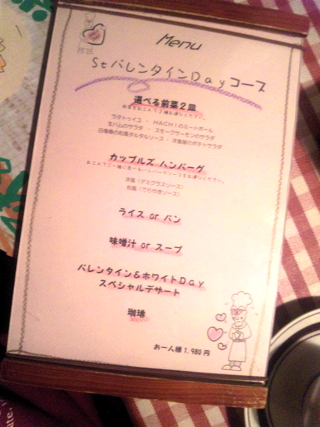 Menu
StバレンタインDayコース
選べる前菜2皿
ラタトゥイユ ・ HACHIのミートボール
生ハムのサラダ ・ スモークサーモンのサラダ
カップルズ ハンバーグ
洋風(デミグラスソース)
和風(てりやきソース)
ライス or パン
味噌汁 or スープ
バレンタイン&ホワイトDay
スペシャルデザート
珈琲
お一人様1,980円